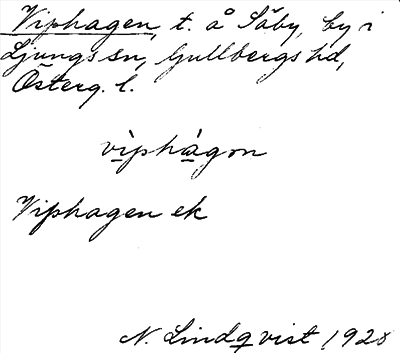 Viphagen, t. å Säby, by i
Ljungs sn, Gullbergs hd,
Österg. l.
vìphàgon
Viphagen ek
N. Lindqvist 1928